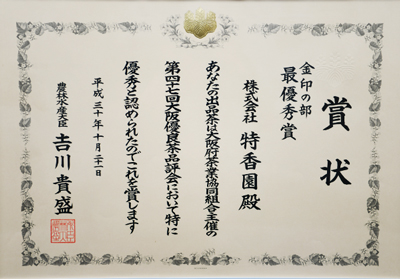 賞状
金印の部
最優秀賞
株式会社 特香園殿
あなたの出品茶は大阪府茶業協同組合主催の
第四十七回大阪優良茶品評会において特に
優秀と認められたのでこれを賞します
平成三十年十月二十一日
農林水産大臣 吉川貴盛